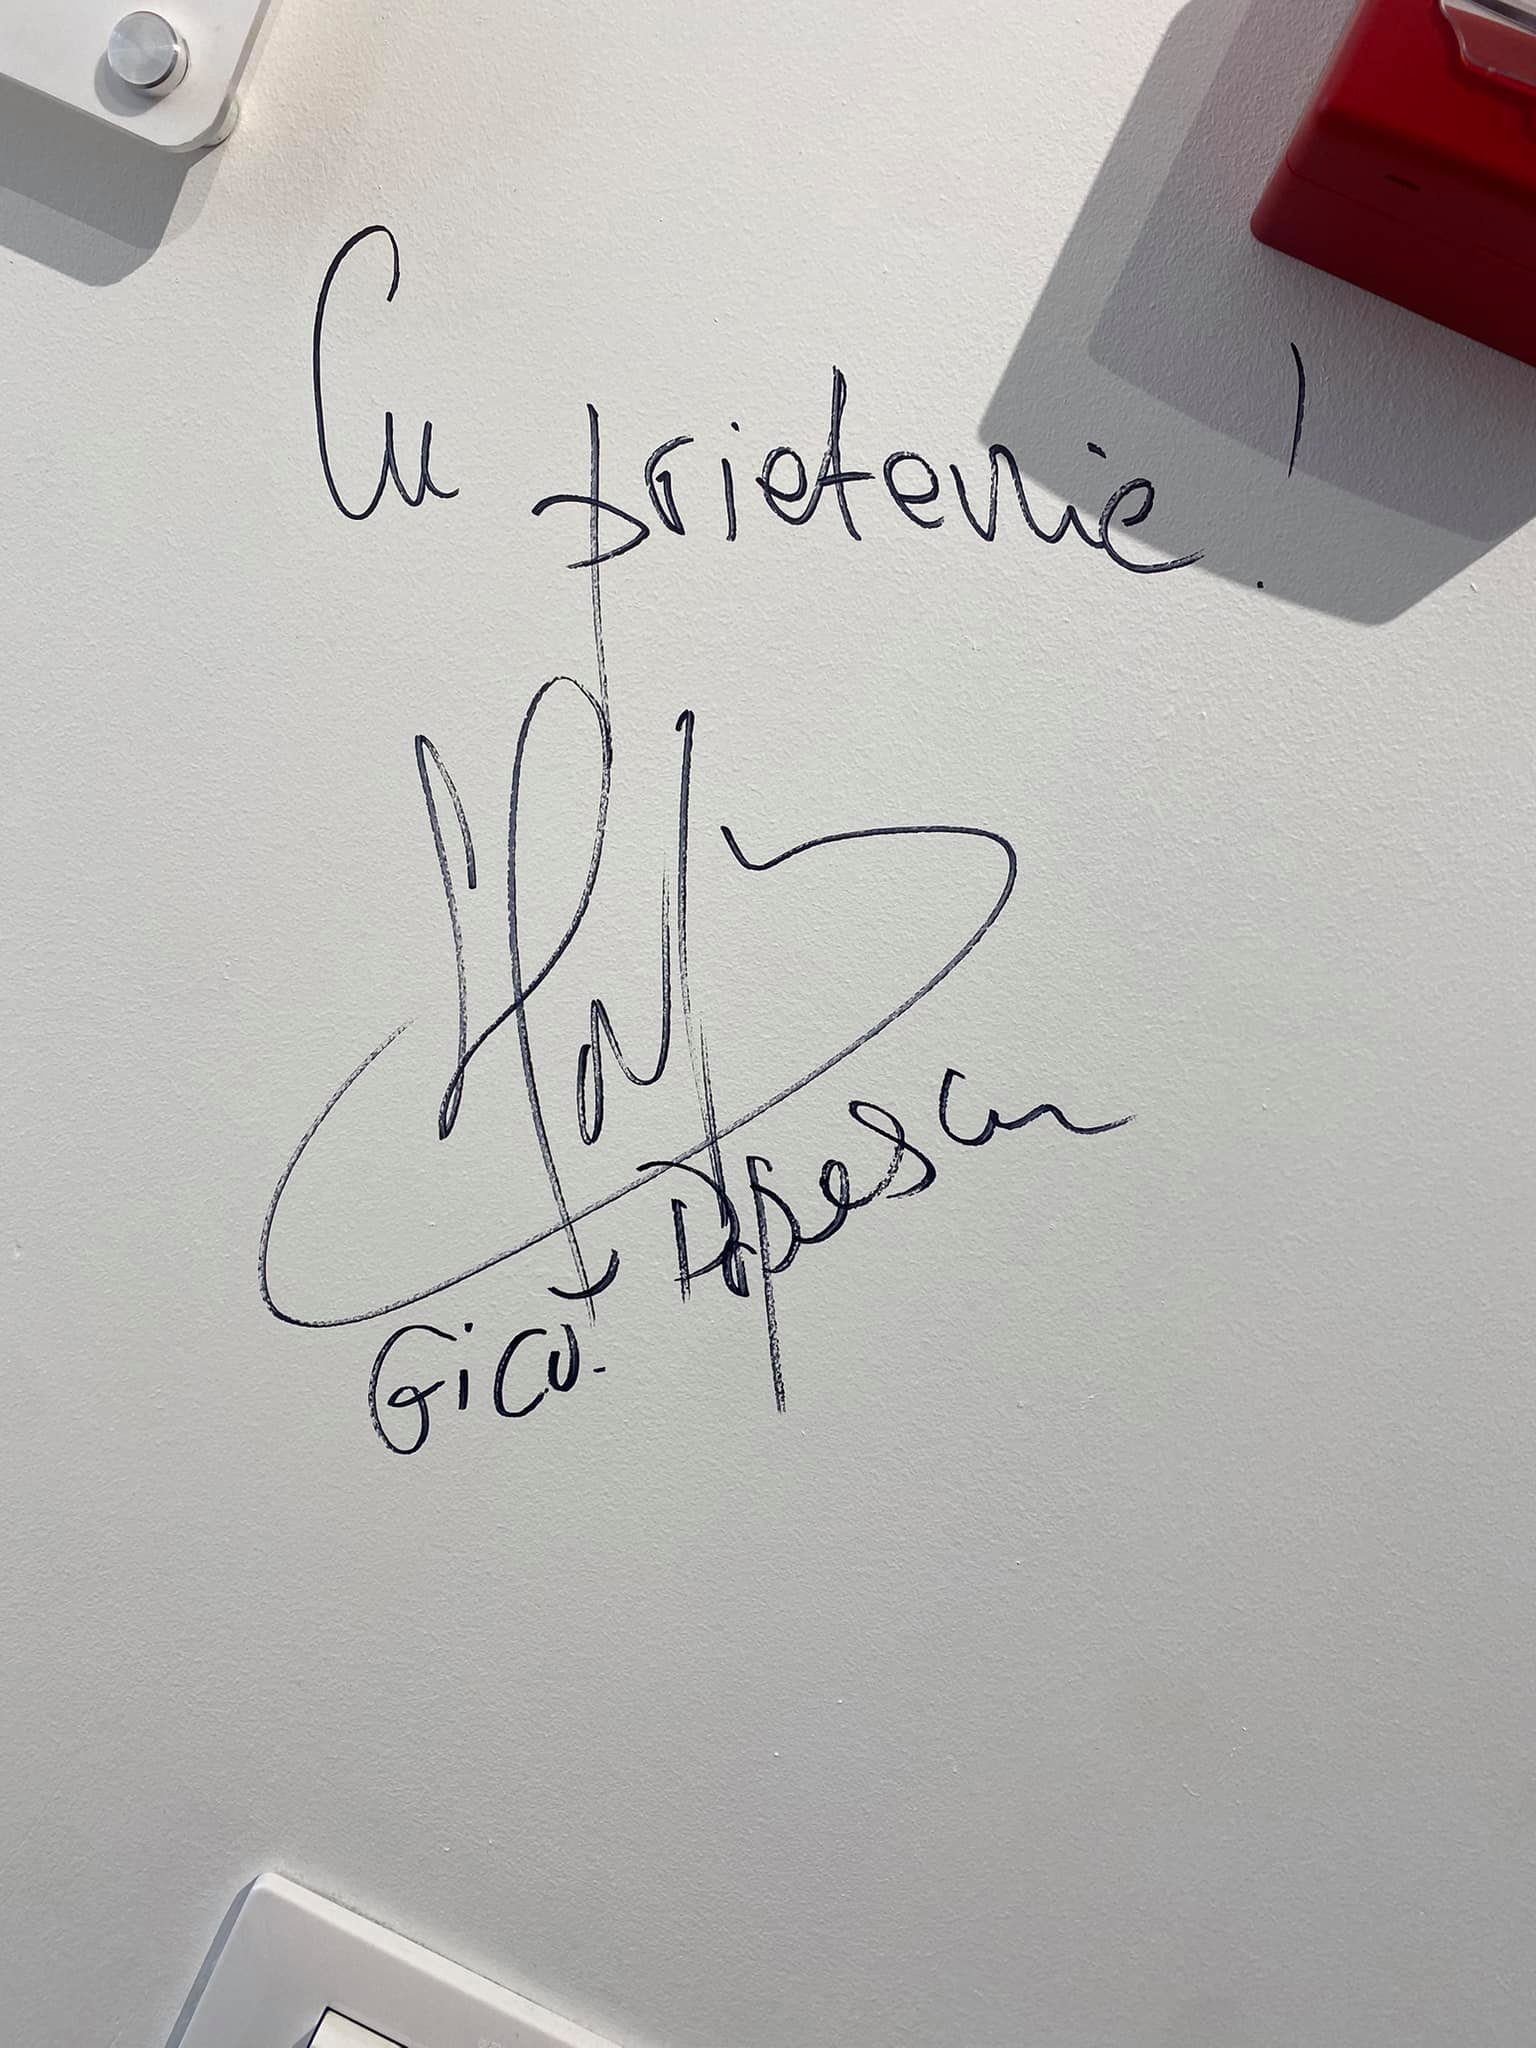 Cu prietenie!
Gicu Popescu